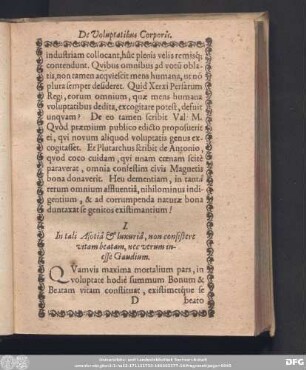 De Voluptatibus Corporis.
industriam collocant, hûc plenis velis remisq;
contendunt. Qvibus omnibus ad votũ obla-
tis, non tamen acqviescit mens humana, ut nõ
plura semper desideret. Quid Xerxi Persarum
Regi, eorum omnium, quæ mens humana
voluptatibus dedita, excogitare potest, defuit
unqvam? De eo tamen scribit Val. M.
Qvòd præmium publico edicto proposuerit
ei, qvi novum aliqvod voluptatis genus ex-
cogitasset. Et Plutarchus scribit de Antonio,
qvod coco cuidam, qvi unam cœnam scitè
paraverat, omnia confestim civis Magnetis
bona donaverit. Heu dementiam, in tanta
rerum omnium affluentiâ, nihilominus indi-
gentium, & ad corrumpenda naturæ bona
duntaxat se genitos existimantium!
I.
In tali Asotiâ & luxuriâ, non consistere
vitam beatam, nec verum in-
esse Gaudium.
QVamvis maxima mortalium pars, in
voluptate hodie summum Bonum &
Beatam vitam constituat, existimetque se
D
beato